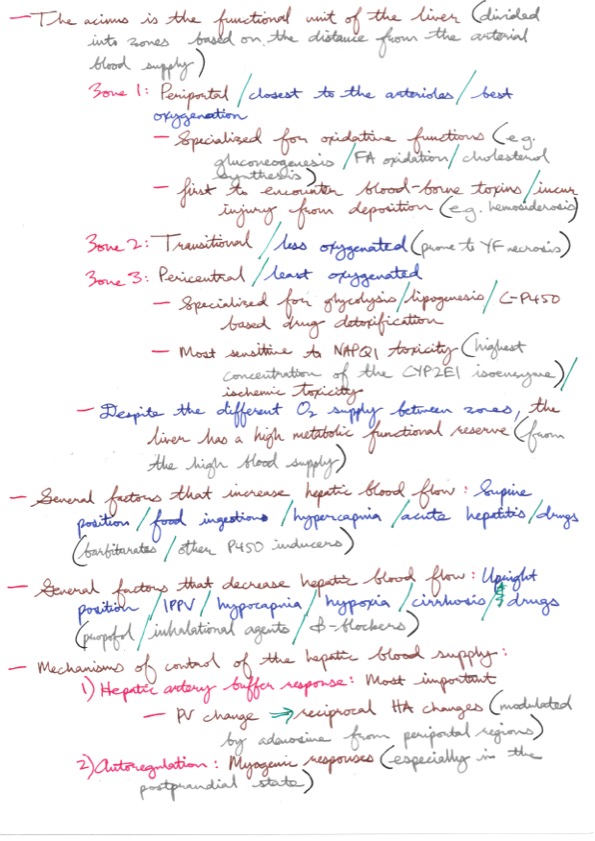 — The acinus is the functional unit of the liver (divided
into zones based on the distance from the arterial
blood supply)
Zone 1: Periportal / closest to the arterioles / best
oxygenation
— Specialized for oxidative functions (e.g.
gluconeogenesis / FA oxidation / cholesterol
synthesis)
— first to encounter blood-borne toxins / incur
injury from deposition (e.g. hemosiderosis)
Zone 2: Transitional / less oxygenated (prone to YF necrosis)
Zone 3: Pericentral / least oxygenated
— Specialized for glycolysis / lipogenesis / C-P450
based drug detoxification
— Most sensitive to NAPQI toxicity (highest
concentration of the CYP2E1 isoenzyme) /
ischemic toxicity
— Despite the different O2 supply between zones, the
liver has a high metabolic functional reserve (from
the high blood supply)
— General factors that increase hepatic blood flow: Supine
position / food ingestions / hypercapnia / acute hepatitis / drugs
(barbitarates / other P450 inducers)
— General factors that decrease hepatic blood flow: Upright
position / IPPV / hypocapnia / hypoxia / cirrhosis / drugs
(propofol / inhalational agents / B-blockers)
— Mechanisms of control of the hepatic blood supply:
1) Hepatic artery buffer response: Most important
— PV change → reciprocal HA changes (modulated
by adenosine from periportal regions)
2) Autoregulation: Myogenic responses (especially in the
postprandial state)